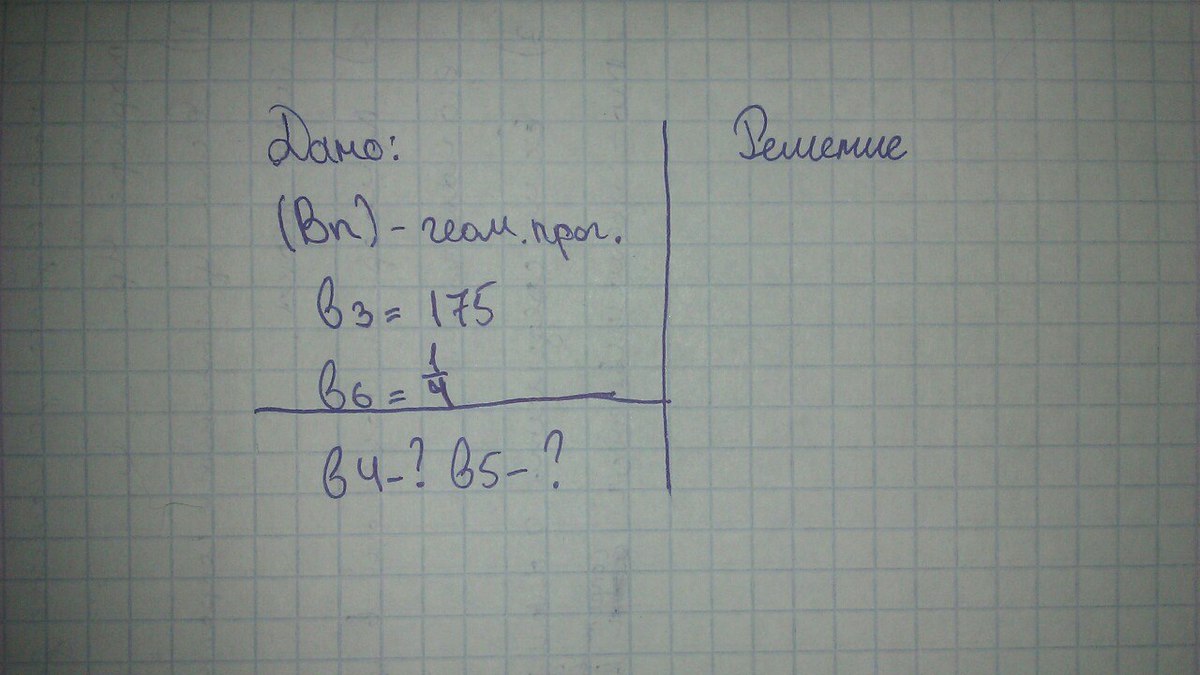 Дано:
(Bn) - геом. прог.
в3 = 175
в6 = 1/4
в4-? в5-?
Решение